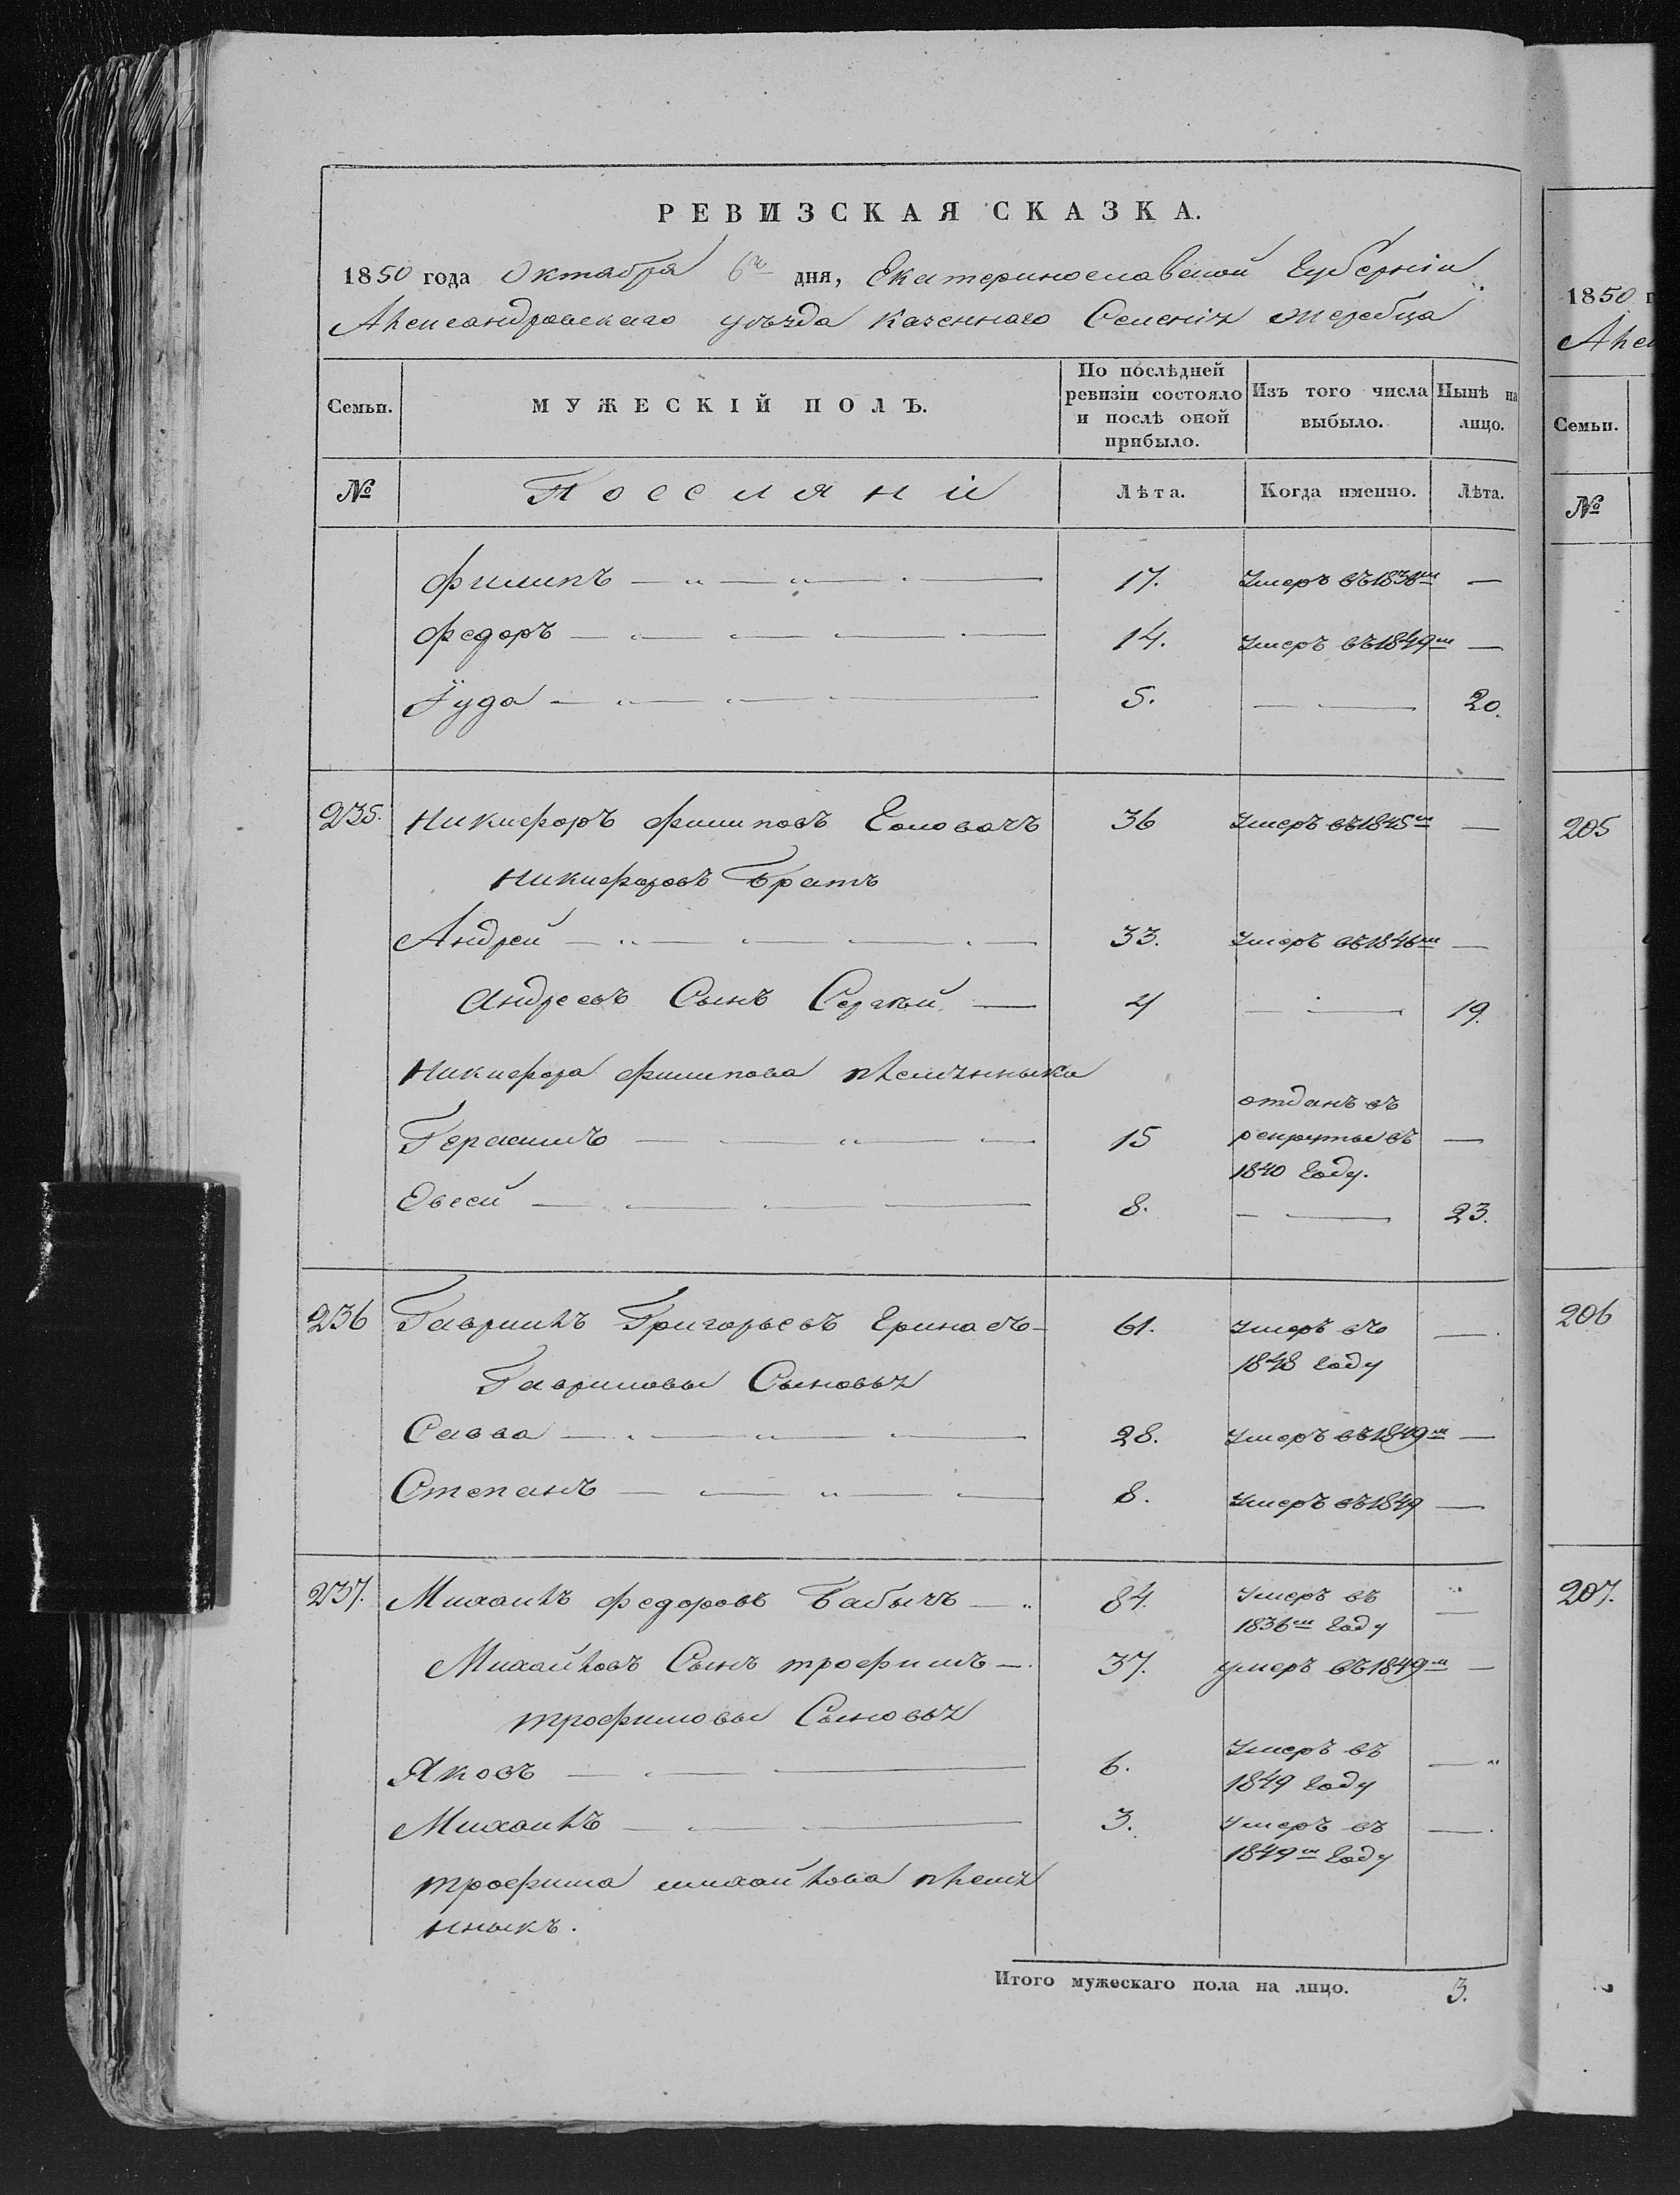 РЕВИЗСКАЯ СКАЗКА.
1850 года Октября 6го дня, Екатеринославской Губерніи
Александровскаго уѣзда Казеннаго Селенія Жеребца
Семьи. МУЖЕСКІЙ ПОЛЪ. По послѣдней ревизіи состояло и послѣ оной прибыло. Изъ того числа выбыло. Нынѣ на лицо.
№ Поселяни Лѣта. Когда именно. Лѣта.
Филипъ 17. Умеръ въ 1838м —
Федоръ 14. Умеръ въ 1849м —
Іуда 5. — 20.
235. Никифоръ Филиповъ Головачъ 36 Умеръ въ 1845м —
Никифоровъ Братъ
Андрей 33. Умеръ въ 1846м —
Андреевъ Сынъ Сергѣй 4 — 19.
Никифора Филипова племянныки
Герасимъ 15 отданъ въ рекруты въ 1840 Году. —
Овсей 8. — 23.
236 Гаврилъ Григорьевъ 61. Умеръ въ 1848 Году —
Гавриловы Сыновья
Савва 28. Умеръ въ 1849м —
Степанъ 8. Умеръ въ 1849 —
237. Михаилъ Федоровъ Бабычъ 84. Умеръ въ 1836м Году —
Михайловъ Сынъ трофимъ 37. умеръ въ 1849м —
трофимовы Сыновья
Яковъ 6. Умеръ въ 1849 Году —
Михаилъ 3. Умеръ въ 1849м Году —
трофима михайлова племя
нныкъ.
Итого мужескаго пола на лицо. 3.
1850 г
Алек
Семьи.
№
205
206
207.